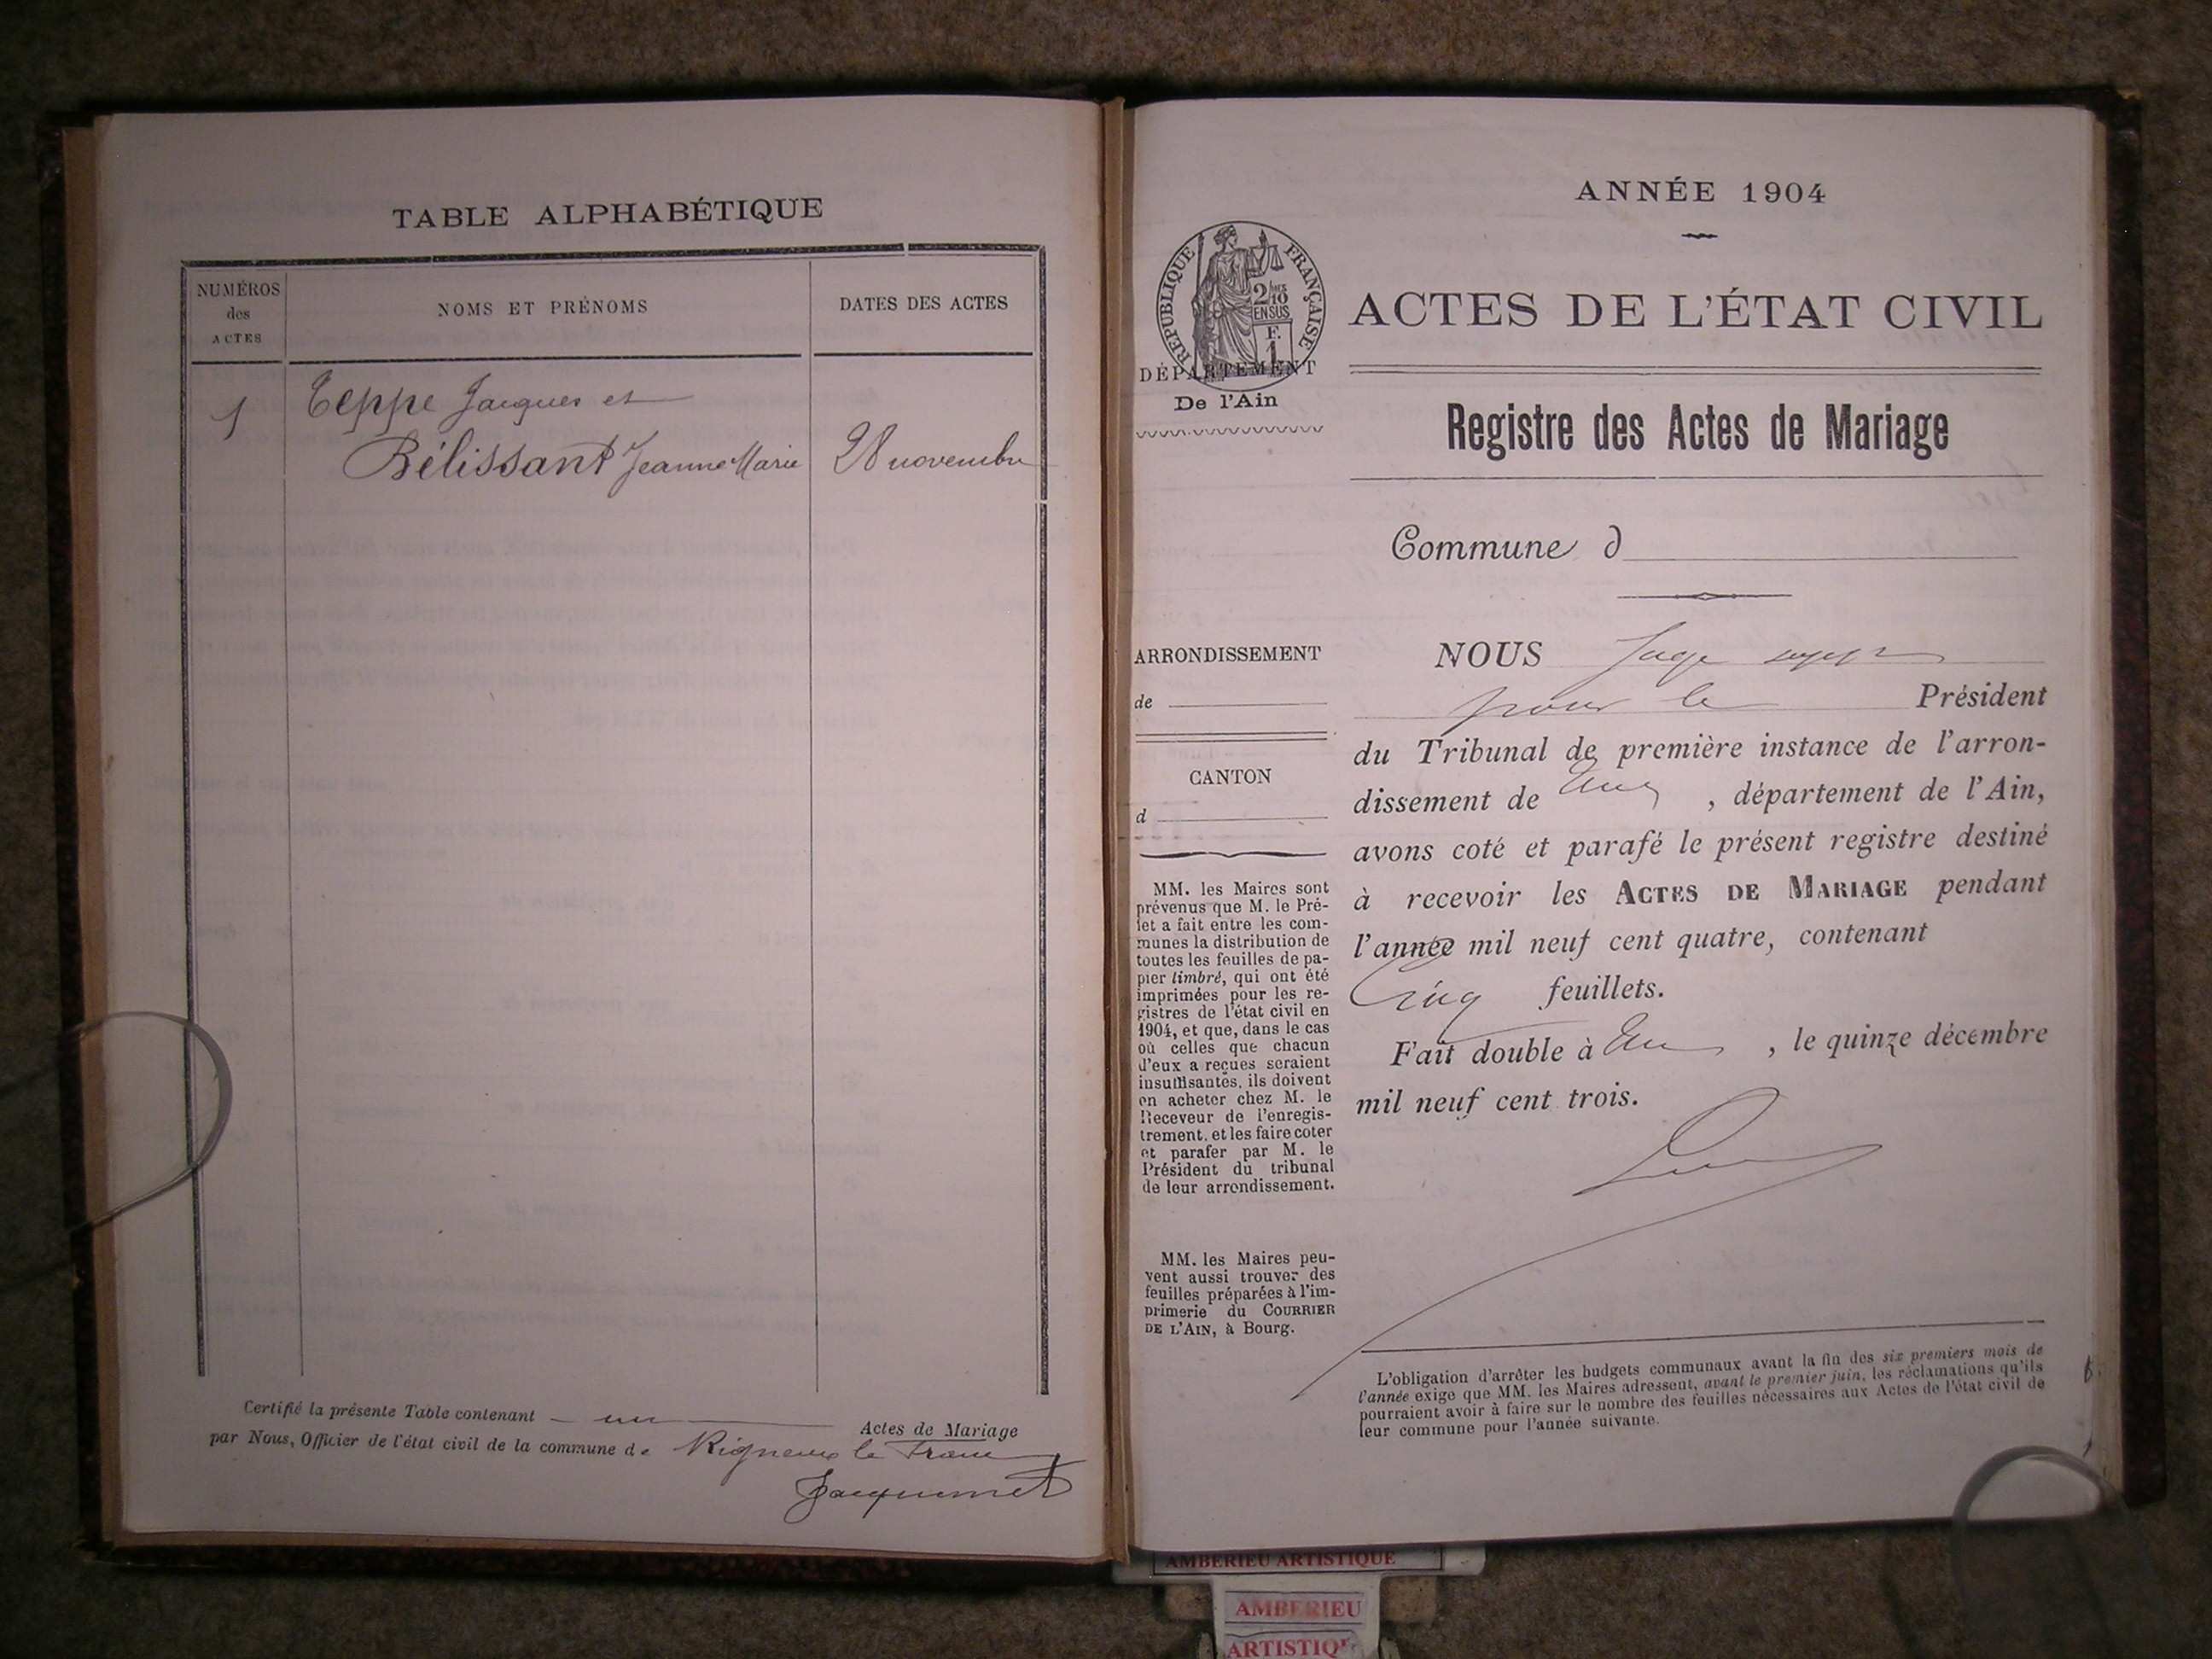 TABLE ALPHABÉTIQUE
NUMÉROS
des
ACTES
NOMS ET PRÉNOMS
DATES DES ACTES
1
Teppe Jacques et
Bélissant Jeanne Marie
28 novembre
Certifié la présente Table contenant un Actes de Mariage
par Nous, Officier de l'état civil de la commune de Rigneux le Franc
Jacquemet
ANNÉE 1904
RÉPUBLIQUE FRANÇAISE
2/10
EN SUS
F.
1
DÉPARTEMENT
De l'Ain
ACTES DE L'ÉTAT CIVIL
Registre des Actes de Mariage
Commune d
ARRONDISSEMENT
de
CANTON
d
MM. les Maires sont
prévenus que M. le Pré-
fet a fait entre les com-
munes la distribution de
toutes les feuilles de pa-
pier timbré, qui ont été
imprimées pour les re-
gistres de l'état civil en
1904, et que, dans le cas
où celles que chacun
d'eux a reçues seraient
insuffisantes, ils doivent
en acheter chez M. le
Receveur de l'enregis-
trement, et les faire coter
et parafer par M. le
Président du tribunal
de leur arrondissement.
MM. les Maires peu-
vent aussi trouver des
feuilles préparées à l'im-
primerie du COURRIER
DE L'AIN, à Bourg.
NOUS Juge
pour le Président
du Tribunal de première instance de l'arron-
dissement de , département de l'Ain,
avons coté et parafé le présent registre destiné
à recevoir les ACTES DE MARIAGE pendant
l'année mil neuf cent quatre, contenant
Cinq feuillets.
Fait double à , le quinze décembre
mil neuf cent trois.
L'obligation d'arrêter les budgets communaux avant la fin des six premiers mois de
l'année exige que MM. les Maires adressent, avant le premier juin, les réclamations qu'ils
pourraient avoir à faire sur le nombre des feuilles nécessaires aux Actes de l'état civil de
leur commune pour l'année suivante.
AMBERIEU ARTISTIQUE
AMBERIEU
ARTISTIQUE